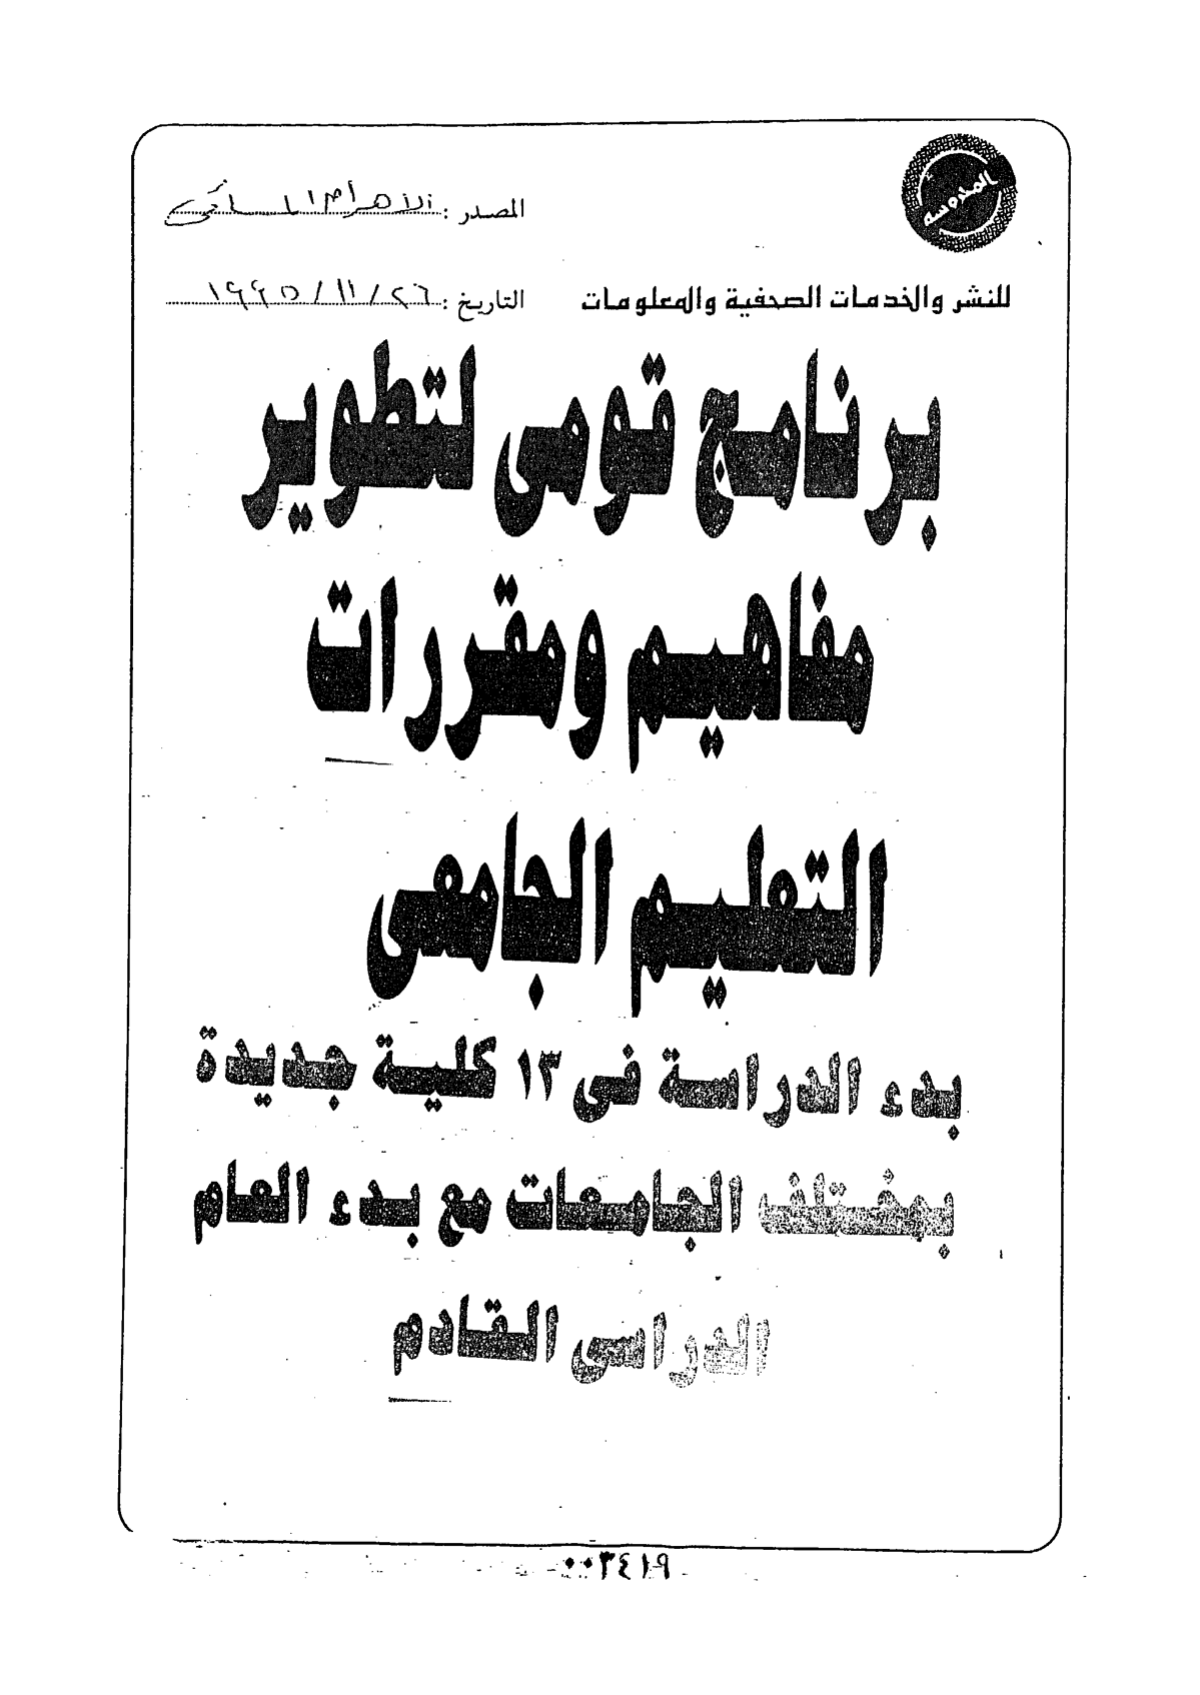 المدوسه
المصدر : الاهرام المسائى
للنشر والخدمات الصحفية والمعلومات
التاريخ : ٢٦ / ١١ / ١٩٩٥
برنامج قومى لتطوير
مفاهيم ومقررات
التعليم الجامعى
بدء الدراسة فى ١٣ كلية جديدة
بمختلف الجامعات مع بدء العام
الدراسى القادم
٠٠٣٤١٩